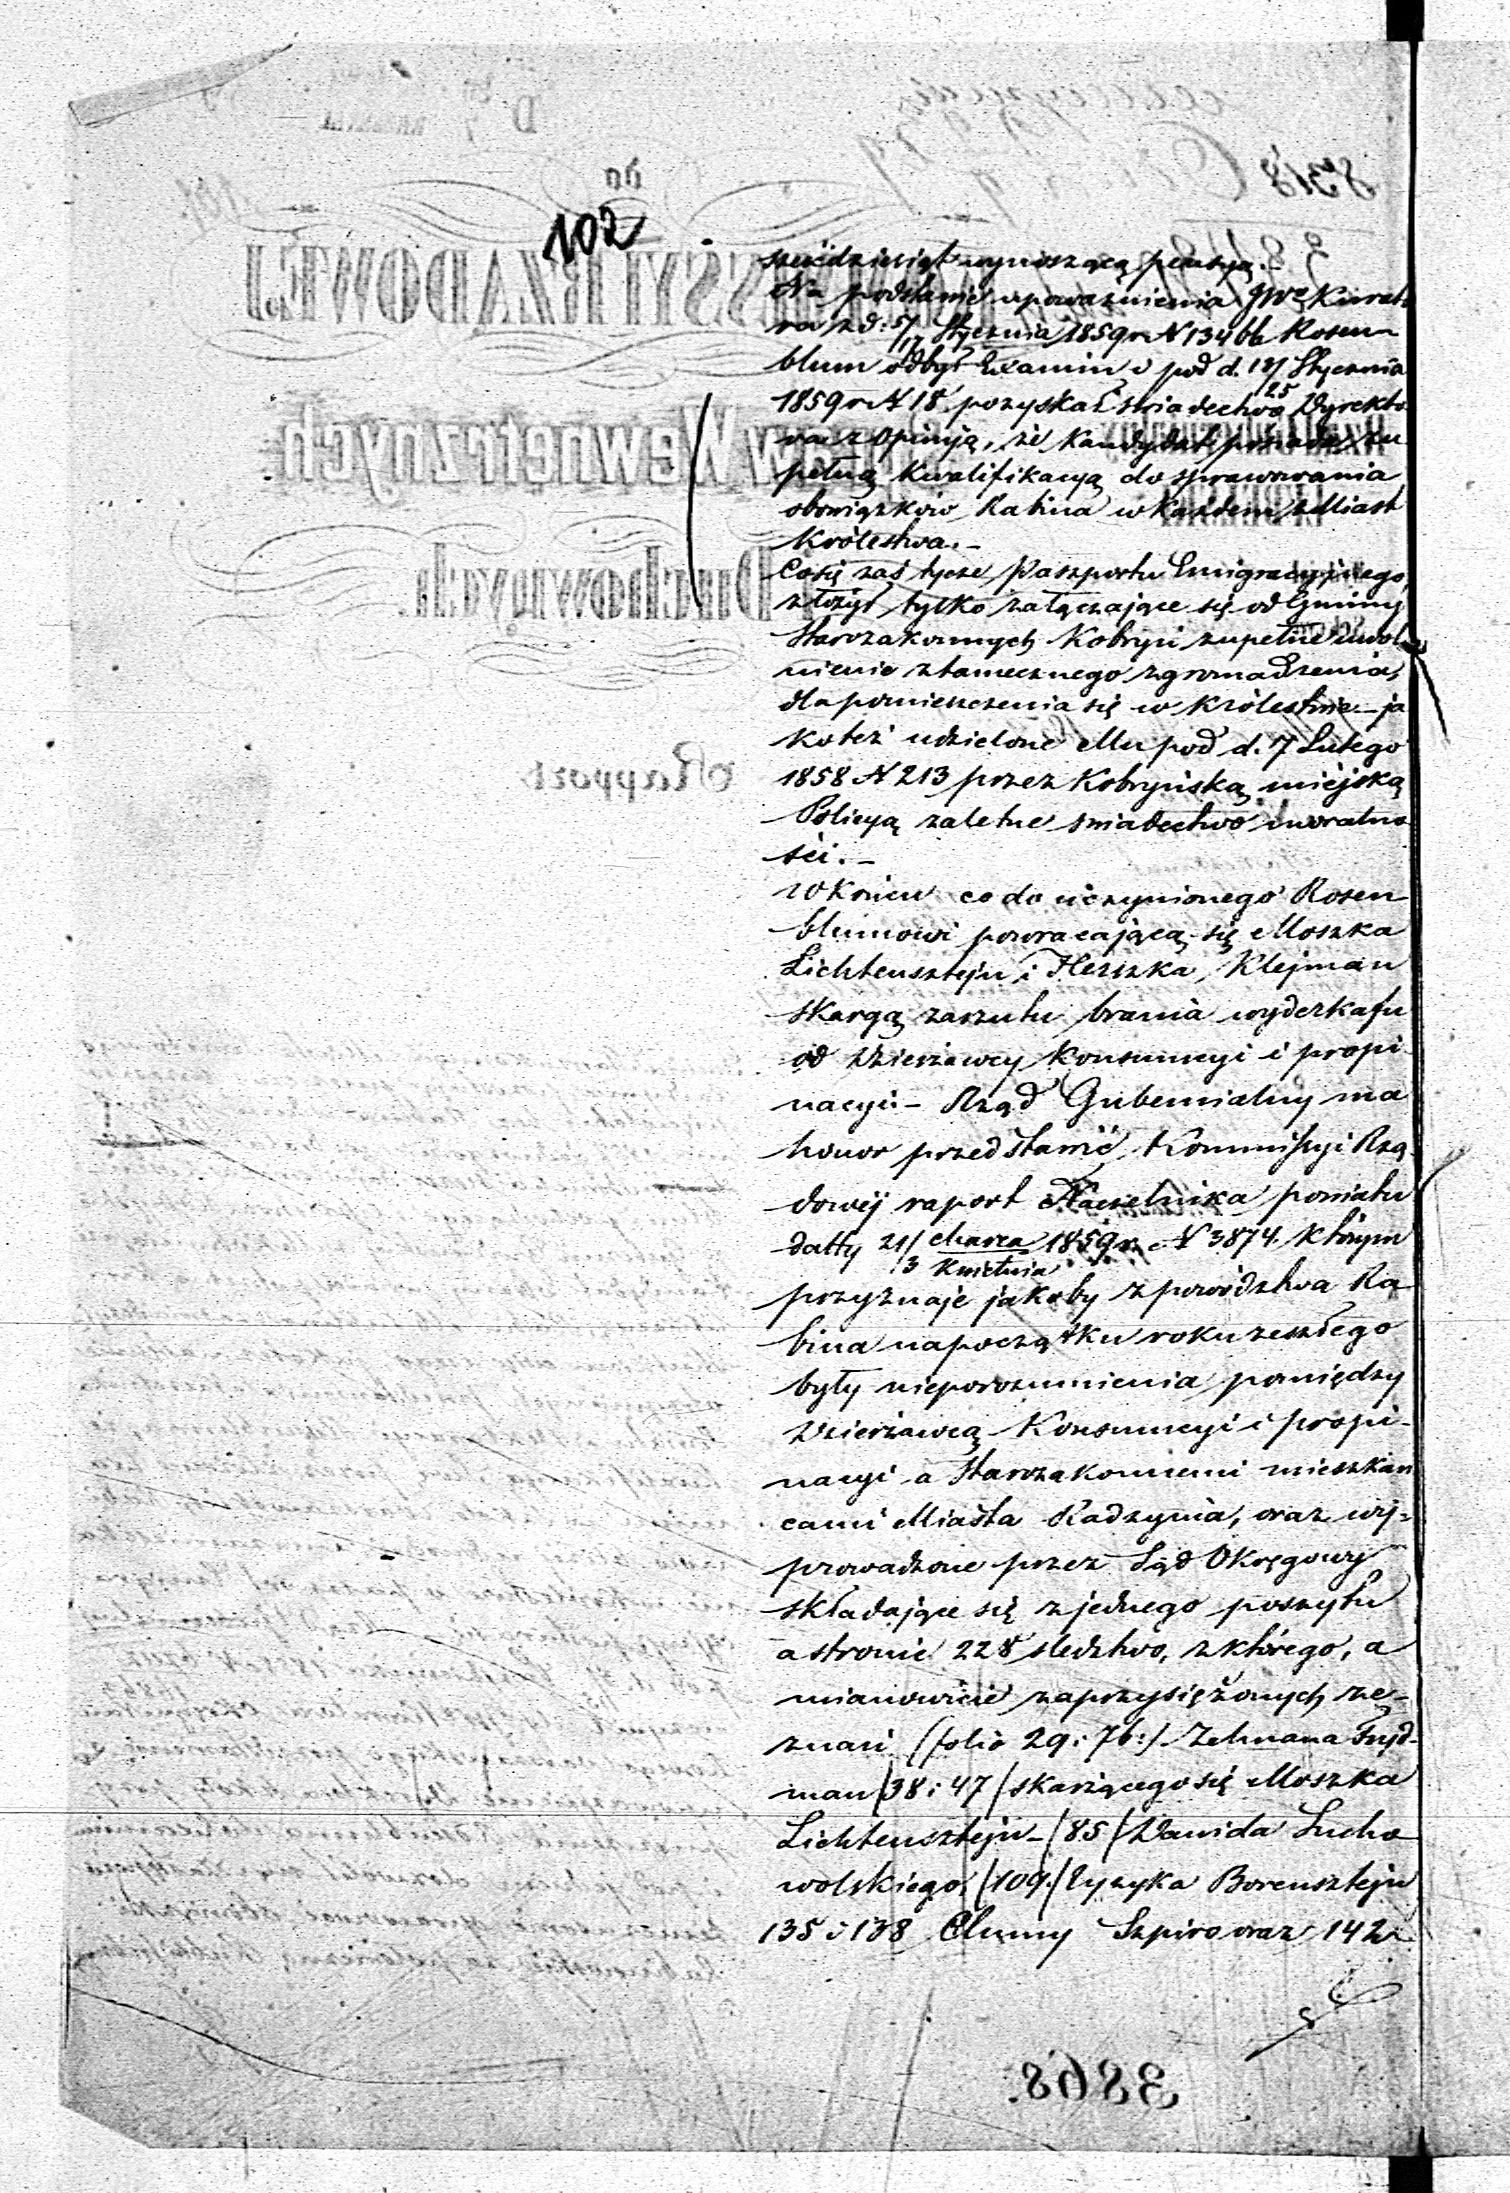 102
sześćdziesiąt wynoszącą pensyą.-
Na podstawie upoważnienia JWo Kurato
ra z d: 5/17 Stycznia 1859 r N 134 bb Rosen-
blum odbył Examin i pod d. 13/25 Stycznia
1859 r N 18 pozyskał świadectwo Dyrekto
ra z opinją, że Kandydat posiada zu
pełną Kwalifikacyą do sprawowania
obowiązków Rabina w Każdem z Miast
Królestwa.-
Co się zaś tycze Paszportu Emigracyjnego,
złożył tylko załączające się od Gminy
Starozakonnych Kobryń zupełne uwol
nienie z tamecznego zgromadzenia,
dla pomieszczenia się w Królestwie - ja
ko też udzielone Mu pod d. 7 Lutego
1858 N 213 przez Kobryńską miejską
Policyą zaletne świadectwo moralno
ści.-
W Końcu co do uczynionego Rosen
blumowi powracającą się Moszka
Lichtensztejn i Herszka Klejman
skargą zarzutu brania wyderkafu
od Dzierżawcy Konsumcyi i propi
nacyi - Rząd Gubernialny ma
honor przedstawić Kommissyi Rzą
dowéj raport Naczelnika powiatu
datty 21/3 Marca/Kwietnia 1859 r. N 3874 Którym
przyznaje jakoby z powództwa Ra
bina na początku roku zeszłego
były nieporozumienia pomiędzy
Dzierżawcą Konsumcyi i propi-
nacyi a Starozakonnemi mieszkań
cami Miasta Radzynia, oraz wy=
prowadzone przez Sąd Okręgowy
składające się z jednego poszytu
a stronic 228 śledztwo, z którego, a
mianowicie zaprzysiężonych ze-
znań (folio 29 i 76:) Zelmana Fryd-
man /38 i 47/ skarżącego się Moszka
Lichtensztejn - /85/ Dawida Sucho
wolskiego, /109/ Eyzyka Borensztejn
135 i 138 Chumy Szpiro oraz 142